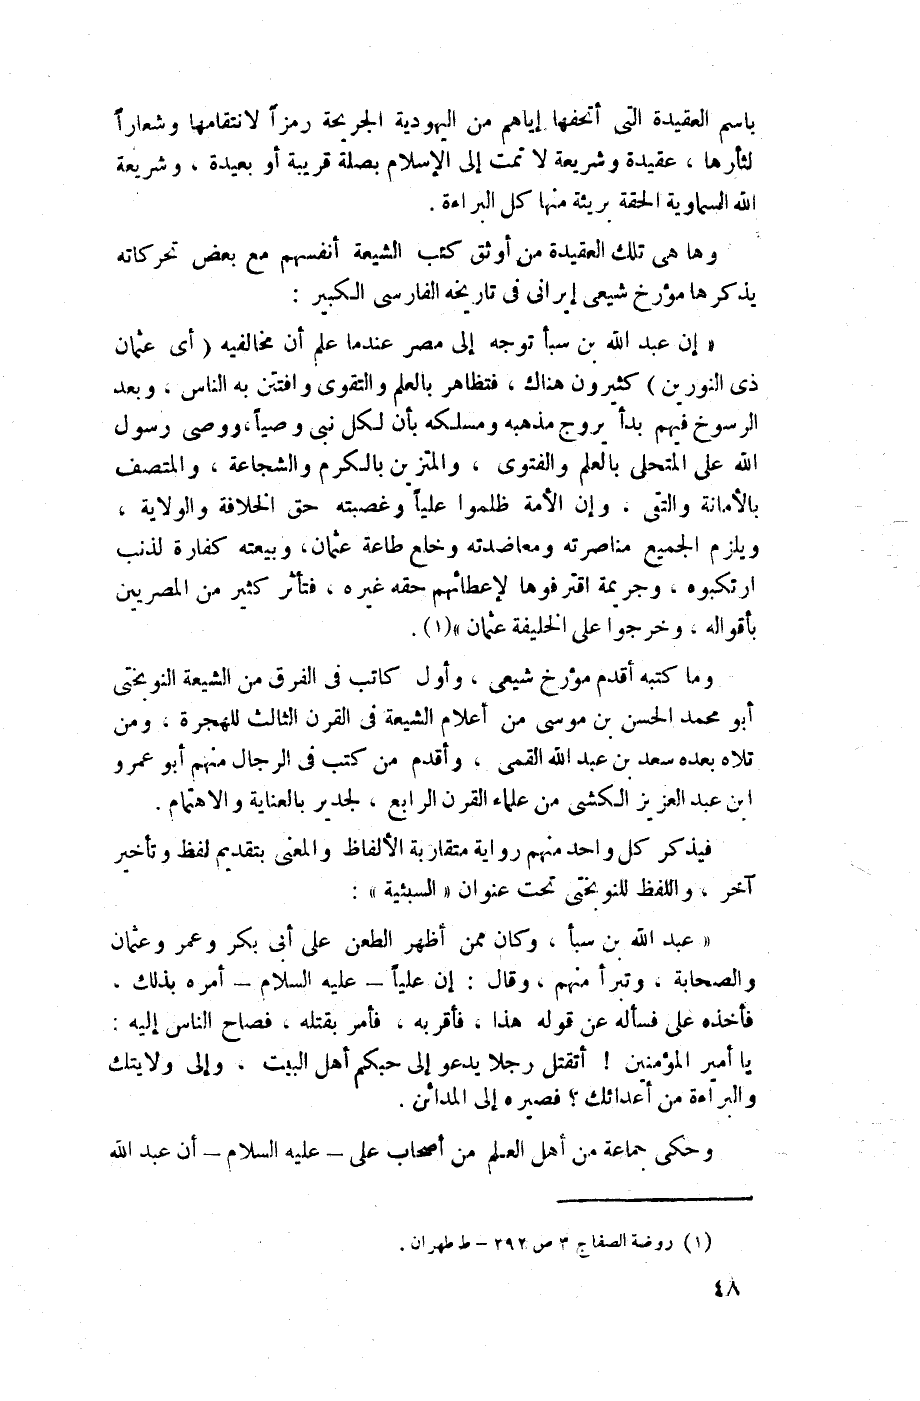 باسم العقيدة التى أتحفها إياهم من اليهودية الجريحة رمزاً لانتقامها وشعاراً
لثأرها ، عقيدة وشريعة لا تمت إلى الإسلام بصلة قريبة أو بعيدة ، وشريعة
الله السماوية الحقة بريئة منها كل البراءة .
وها هى تلك العقيدة من أوثق كتب الشيعة أنفسهم مع بعض تحركاته
يذكرها مؤرخ شيعى إيرانى فى تاريخه الفارسى الكبير :
« إن عبد الله بن سبأ توجه إلى مصر عندما علم أن مخالفيه ( أى عثمان
ذى النورين ) كثيرون هناك ، فتظاهر بالعلم والتقوى وافتتن به الناس ، وبعد
الرسوخ فيهم بدأ يروج مذهبه ومسلكه بأن لكل نبى وصياً ، ووصى رسول
الله على المتحلى بالعلم والفتوى ، والمتزين بالكرم والشجاعة ، والمتصف
بالأمانة والتقى . وإن الأمة ظلموا علياً وغصبته حق الخلافة والولاية ،
ويلزم الجميع مناصرته ومعاضدته وخلع طاعة عثمان ، وبيعته كفارة لذنب
ارتكبوه ، وجريمة اقترفوها لإعطائهم حقه غيره ، فتأثر كثير من المصريين
بأقواله ، وخرجوا على الخليفة عثمان »(١) .
وما كتبه أقدم مؤرخ شيعى ، وأول كاتب فى الفرق من الشيعة النوبختى
أبو محمد الحسن بن موسى من أعلام الشيعة فى القرن الثالث للهجرة ، ومن
تلاه بعده سعد بن عبد الله القمى ، وأقدم من كتب فى الرجال منهم أبو عمرو
ابن عبد العزيز الكشى من علماء القرن الرابع ، لجدير بالعناية والاهتمام .
فيذكر كل واحد منهم رواية متقاربة الألفاظ والمعنى بتقديم لفظ وتأخير
آخر ، واللفظ للنوبختى تحت عنوان « السبئية » :
« عبد الله بن سبأ ، وكان ممن أظهر الطعن على أبى بكر وعمر وعثمان
والصحابة ، وتبرأ منهم ، وقال : إن علياً – عليه السلام – أمره بذلك .
فأخذه على فسأله عن قوله هذا ، فأقر به ، فأمر بقتله ، فصاح الناس إليه :
يا أمير المؤمنين ! أتقتل رجلا يدعو إلى حبكم أهل البيت ، وإلى ولايتك
والبراءة من أعدائك ؟ فصيره إلى المدائن .
وحكى جماعة من أهل العلم من أصحاب على – عليه السلام – أن عبد الله
(١) روضة الصفا ج ٣ ص ٢٩٢ – ط طهران .
٤٨